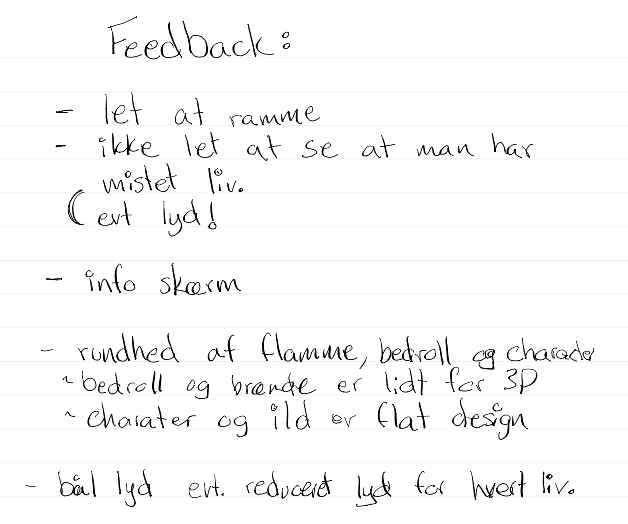 Feedback:
- let at ramme
- ikke let at se at man har
mistet liv.
( evt lyd!
- info skærm
- rundhed af flamme, bedroll og charader
~ bedroll og brænde er lidt for 3D
~ charater og ild er flat design
- bål lyd evt. reduceret lyd for hvert liv.